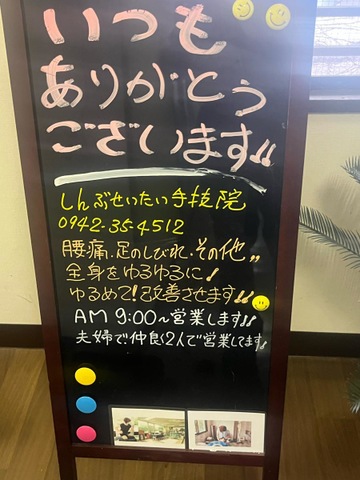 いつも
ありがとう
ございます!!
しんぶせいたい手技院
0942-35-4512
腰痛、足のしびれ、その他,,
全身をゆるゆるに!
ゆるめて!改善させます!!
AM 9:00~営業します!!
夫婦で仲良く2人で営業してます!